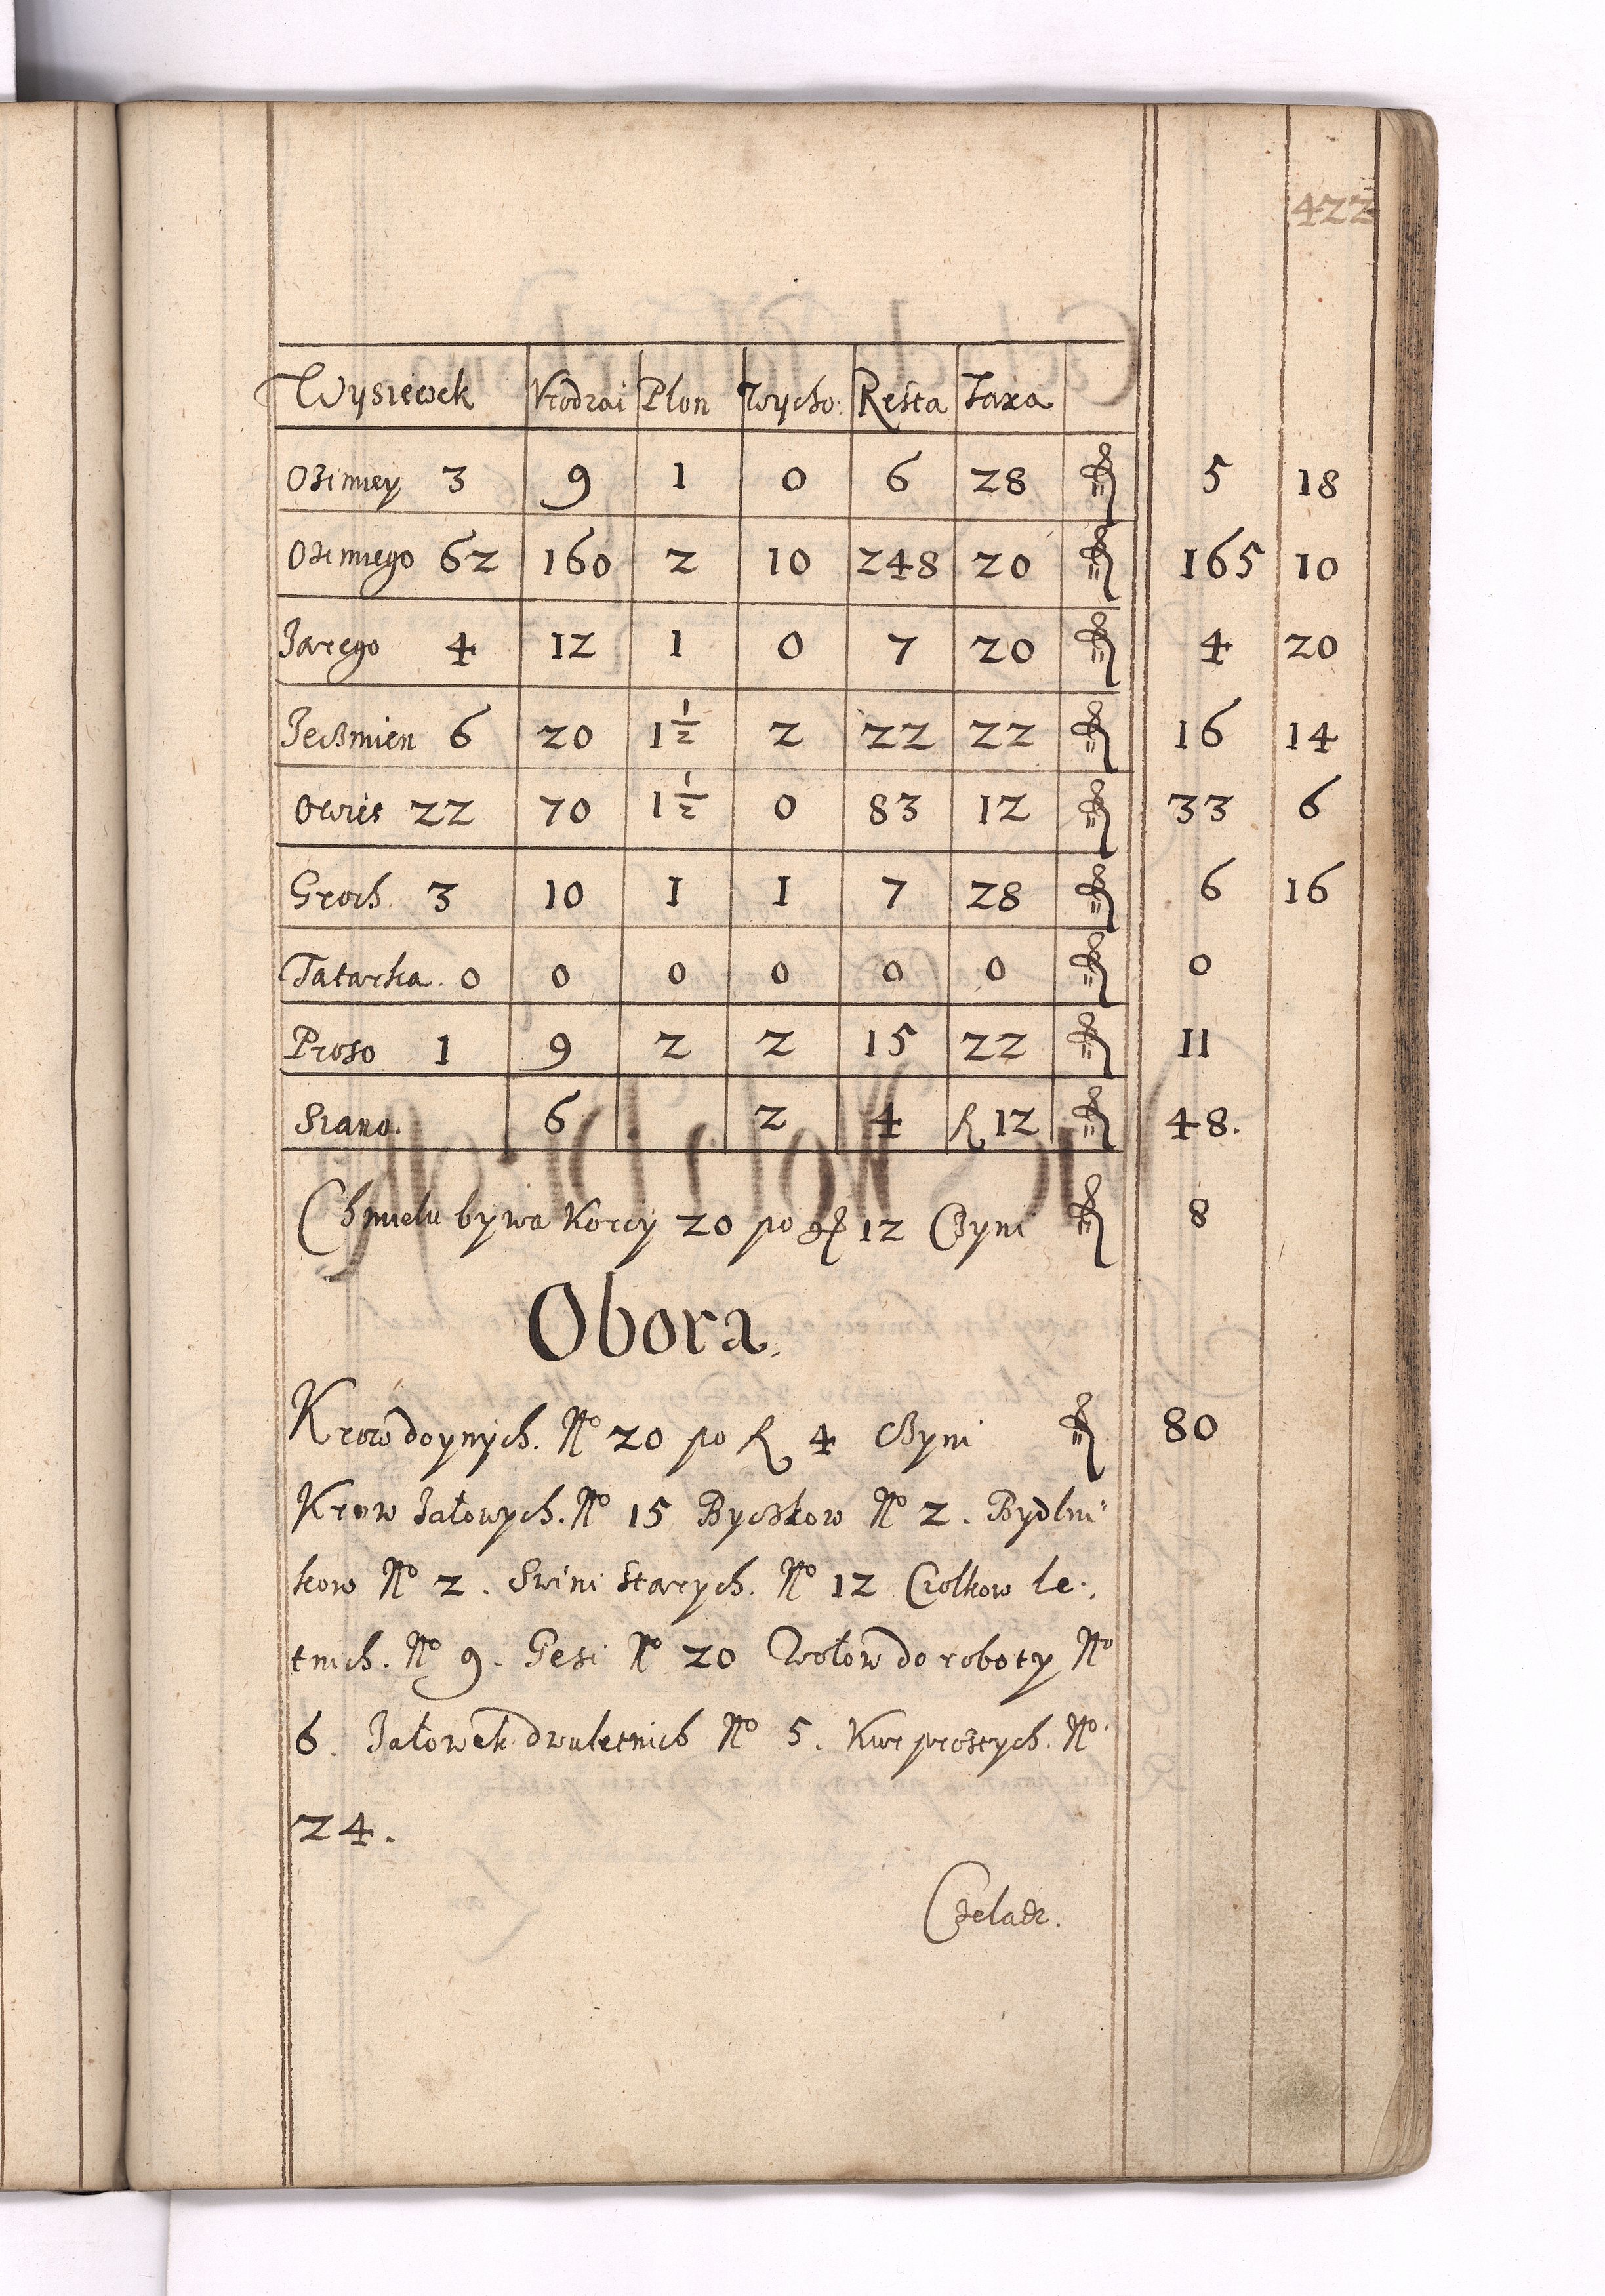 422
Wysiewek Vrodzai Plon Wycho: Resta Taxa
Ozimey 3 9 1 0 6 28 5 18
Ozimego 62 160 2 10 248 20 165 10
Jarego 4 12 1 0 7 20 4 20
Jeczmien 6 20 1½ 2 22 22 16 14
Owies 22 70 1½ 0 83 12 33 6
Groch 3 10 1 1 7 28 6 16
Tatarka. 0 0 0 0 0 0 0
Proso 1 9 2 2 15 22 11
Siano. 6 2 4 R 12 48.
Chmielu bywa Korcy 20 po 12 Czyni 8
Obora.
Krow doynych. No 20 po R 4 Czyni 80
Krow Jałowych. No 15 Byczkow No 2. Bydlni-
kow No 2. Swini Starych. No 12 Ciolkow le-
tnich. No 9. Gesi No 20 Wołow do roboty No
6. Jałowek dwuletnich No 5. Kur prostych. No
24.
Czeladz.